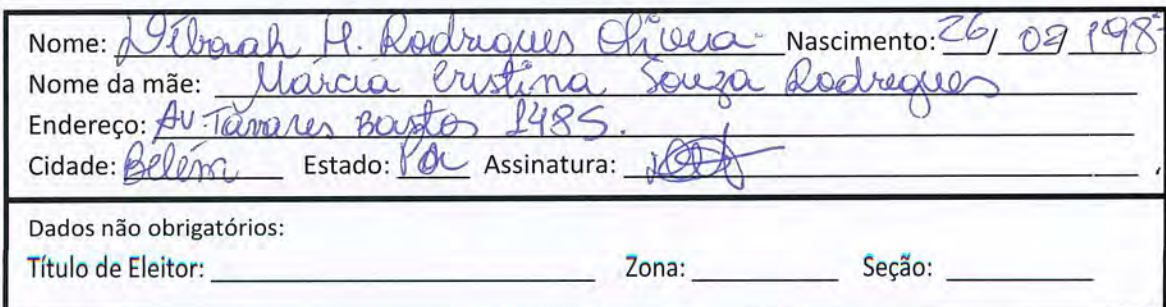 Nome: Déborah H. Rodrigues Oliveira Nascimento: 26/ 02 /198
Nome da mãe: Márcia Cristina Souza Rodrigues
Endereço: AV. Tavares Bastos 1485.
Cidade: Belém Estado: Pa Assinatura:
Dados não obrigatórios:
Título de Eleitor: Zona: Seção: